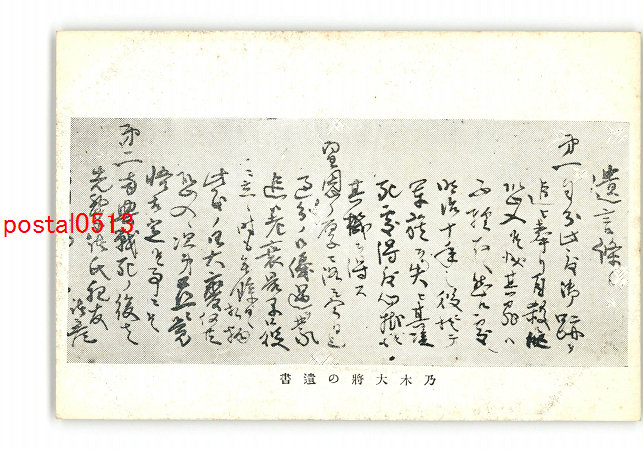 遺言條々
第一自分此度御跡ヲ
追ヒ奉リ自殺候段
恐入候儀其罪ハ
不輕存候然ル處
明治十年之役ニ於テ
軍旗ヲ失ヒ其後
死處得度心掛候モ
其機ヲ得ス
皇恩ノ厚ニ浴シ今日迄
過分ノ御優遇ヲ蒙
追々老衰最早御役
ニ立候時モ無餘日候折柄
此度ノ御大變何共
恐入候次第茲ニ覺
悟相定候事ニ候
第二両典戰死ノ後ハ
先輩諸氏親友
諸彦
乃木大將の遺書
postal0513